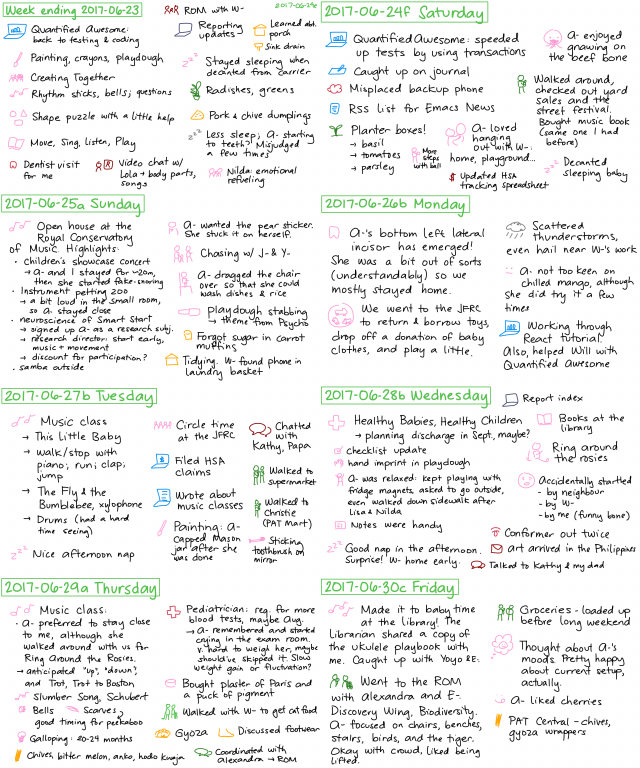 Week ending 2017-06-23
Quantified Awesome:
back to testing & coding
Painting, crayons, playdough
Creating Together
Rhythm sticks, bells; questions
Shape puzzle with a little help
Move, Sing, Listen, Play
Dentist visit
for me
Video chat w/
Lola + body parts,
songs
ROM with W-
Reporting
updates
Stayed sleeping when
decanted from carrier
Radishes, greens
Pork & chive dumplings
Less sleep; A- starting
to teeth? Misjudged
a few times
Nilda: emotional
refueling
Learned abt.
porch
Sink drain
2017-06-24f Saturday
Quantified Awesome: speeded
up tests by using transactions
Caught up on journal
Misplaced backup phone
RSS list for Emacs News
Planter boxes!
→ basil
→ tomatoes
→ parsley
More
steps
with ball
A- loved
hanging
out with W-:
home, playground...
Updated HSA
tracking spreadsheet
A- enjoyed
gnawing on
the beef bone
Walked around,
checked out yard
sales and the
street festival.
Bought music book
(same one I had
before)
Decanted
sleeping baby
2017-06-25a Sunday
Open house at the
Royal Conservatory
of Music Highlights:
• Children's showcase concert
→ A- and I stayed for ~20m,
then she started fake-snoring
• Instrument petting zoo
→ a bit loud in the small room,
so A- stayed close
• neuroscience of Smart Start
→ signed up A- as a research subj.
→ research director: start early,
music + movement
→ discount for participation?
• samba outside
A- wanted the pear sticker.
She stuck it on herself.
Chasing w/ J- & Y-
A- dragged the chair
over so that she could
wash dishes & rice
Playdough stabbing
→ theme from Psycho
Forgot sugar in carrot
muffins
Tidying. W- found phone in
laundry basket
2017-06-26b Monday
A-'s bottom left lateral
incisor has emerged!
She was a bit out of sorts
(understandably) so we
mostly stayed home.
We went to the JFRC
to return & borrow toys,
drop off a donation of baby
clothes, and play a little.
Scattered
thunderstorms,
even hail near W-'s work
A- not too keen on
chilled mango, although
She did try it a few
times
Working through
React tutorial
Also, helped Will with
Quantified Awesome
2017-06-27b Tuesday
Music class
→ This Little Baby
→ walk/stop with
piano; run; clap;
jump
→ The Fly & the
Bumblebee, xylophone
→ Drums (had a hard
time seeing)
Nice afternoon nap
Circle time
at the JFRC
Filed HSA
claims
Wrote about
music classes
Painting: A-
capped Mason
jar after she
was done
Chatted
with
Kathy, Papa
Walked to
supermarket
Walked to
Christie
(PAT Mart)
Sticking
toothbrush on
mirror
2017-06-28b Wednesday
Healthy Babies, Healthy Children
→ planning discharge in Sept., maybe?
checklist update
hand imprint in playdough
A- was relaxed: kept playing with
fridge magnets, asked to go outside,
even walked down sidewalk after
Lisa & Nilda
Notes were handy
Good nap in the afternoon.
Surprise! W- home early.
Report index
Books at the
library
Ring around
the rosies
Accidentally startled
- by neighbour
- by W-
- by me (funny bone)
Conformer out twice
art arrived in the Philippines
Talked to Kathy & my dad
2017-06-29a Thursday
Music class:
• A- preferred to stay close
to me, although she
walked around with us for
Ring Around the Rosies.
→ anticipated "up", "down",
and Trot, Trot to Boston
Slumber Song, Schubert
Bells
Scarves,
good timing for peekaboo
Galloping: 20-24 months
Chives, bitter melon, anko, hodo kwaja
Pediatrician: req. for more
blood tests, maybe Aug.
→ A- remembered and started
crying in the exam room.
V. hard to weigh her, maybe
should've skipped it. Slow
weight gain or fluctuation?
Bought plaster of Paris and
a puck of pigment
Walked with W- to get cat food
Gyoza
Discussed footwear
Coordinated with
Alexandra → ROM
2017-06-30c Friday
Made it to baby time
at the library! The
librarian shared a copy of
the ukulele playbook with
me. Caught up with Yoyo RE:
Went to the ROM
with Alexandra and E-.
Discovery Wing, Biodiversity.
A- focused on chairs, benches,
stairs, birds, and the tiger.
Okay with crowd, liked being
lifted.
Groceries - loaded up
before long weekend
Thought about A-'s
moods. Pretty happy
about current setup,
actually.
A- liked cherries
PAT Central - chives,
gyoza wrappers